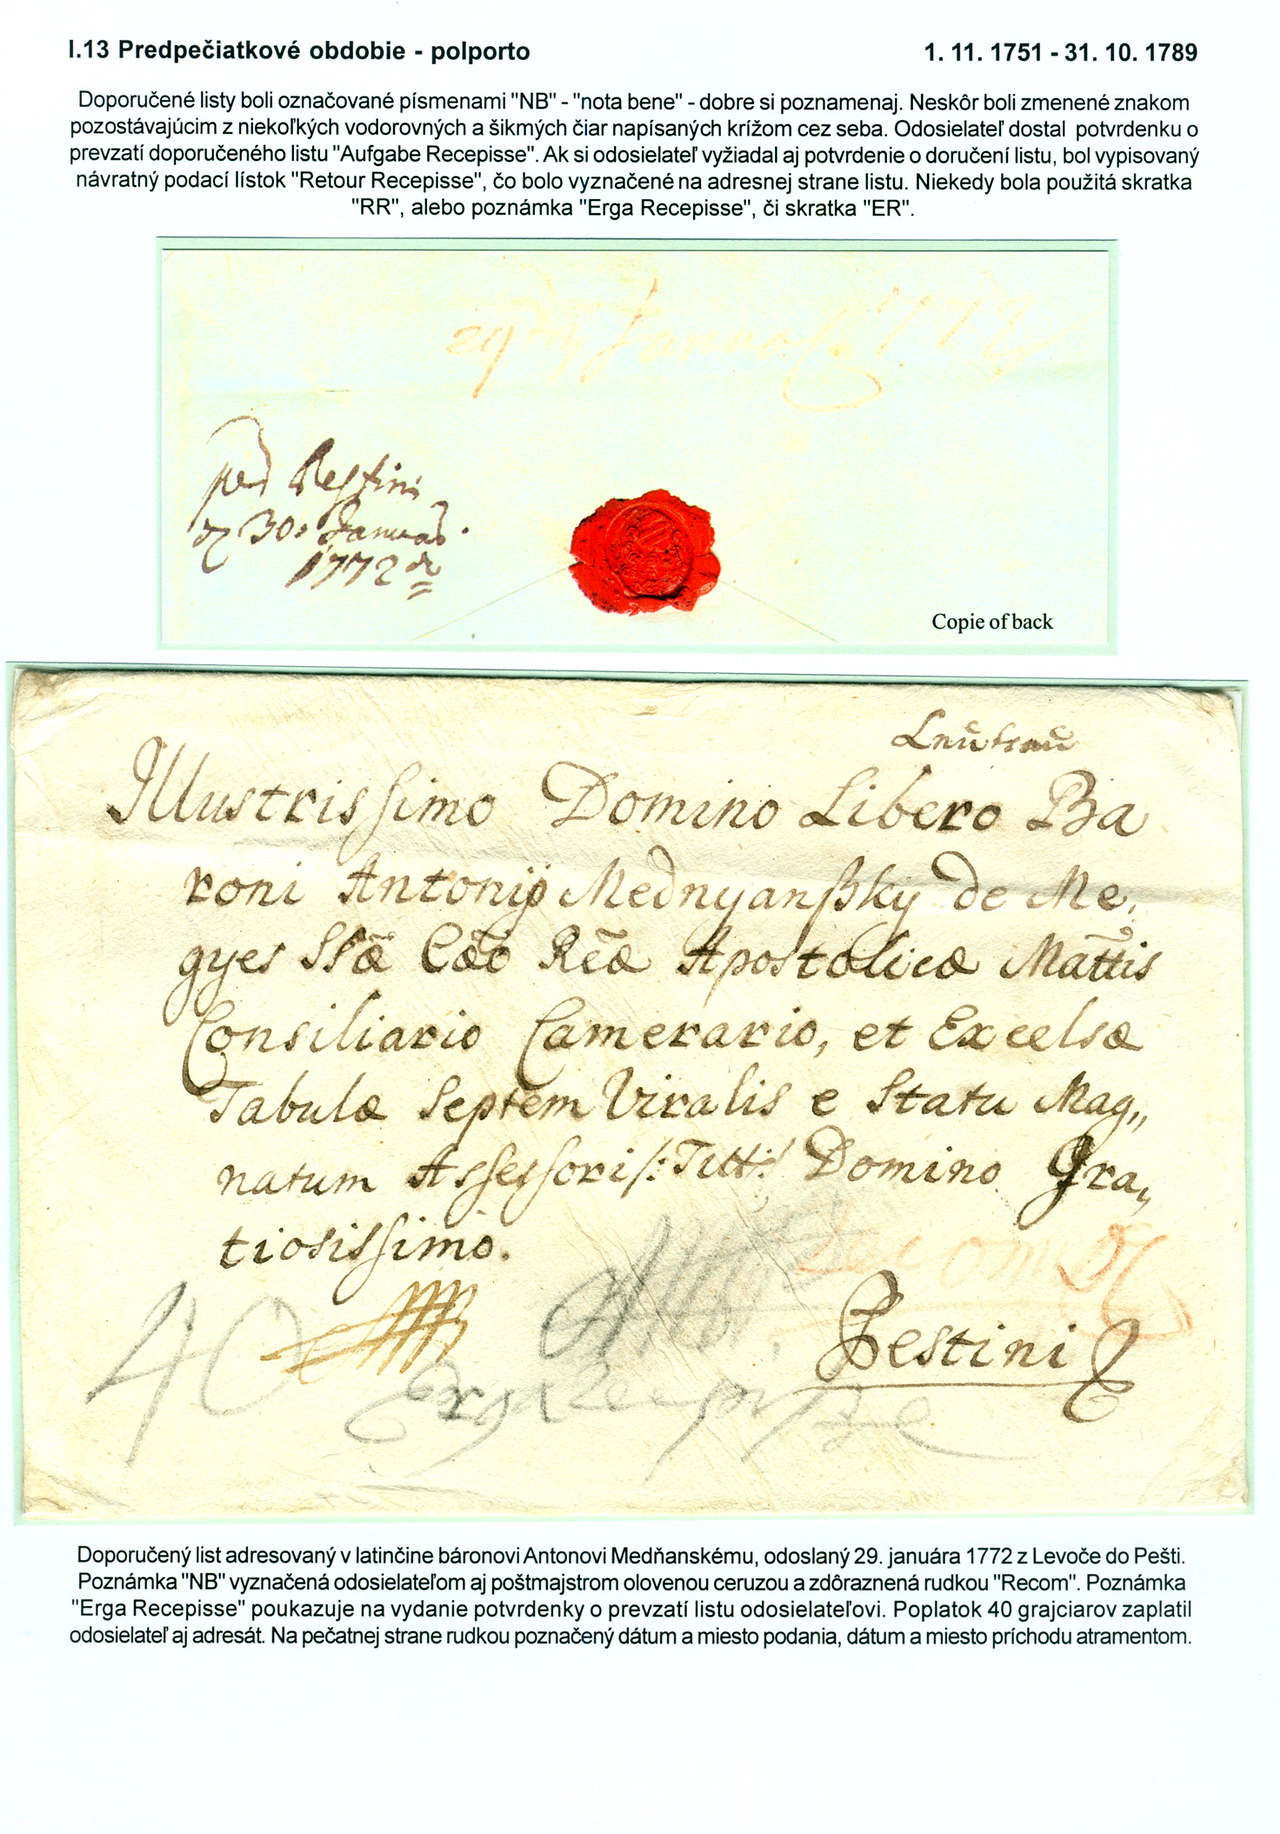 I.13 Predpečiatkové obdobie - polporto 1. 11. 1751 - 31. 10. 1789
Doporučené listy boli označované písmenami "NB" - "nota bene" - dobre si poznamenaj. Neskôr boli zmenené znakom
pozostávajúcim z niekoľkých vodorovných a šikmých čiar napísaných krížom cez seba. Odosielateľ dostal potvrdenku o
prevzatí doporučeného listu "Aufgabe Recepisse". Ak si odosielateľ vyžiadal aj potvrdenie o doručení listu, bol vypisovaný
návratný podací lístok "Retour Recepisse", čo bolo vyznačené na adresnej strane listu. Niekedy bola použitá skratka
"RR", alebo poznámka "Erga Recepisse", či skratka "ER".
29 Januar 1772
30 Januar
1772
Copie of back
Leutschau
Illustrissimo Domino Libero Ba
roni Antonij Mednyanßky de Me,
gyes Sſæ Cæo Reæ Apostolicæ Mattis
Consiliario Camerario, et Excelsæ
Tabulæ Septem Viralis e Statu Mag,,
natum Assessori /: Titt :/ Domino Gra,,
tiosissimo.
Recom
40
Pestini
Erga Recepisse
Doporučený list adresovaný v latinčine báronovi Antonovi Medňanskému, odoslaný 29. januára 1772 z Levoče do Pešti.
Poznámka "NB" vyznačená odosielateľom aj poštmajstrom olovenou ceruzou a zdôraznená rudkou "Recom". Poznámka
"Erga Recepisse" poukazuje na vydanie potvrdenky o prevzatí listu odosielateľovi. Poplatok 40 grajciarov zaplatil
odosielateľ aj adresát. Na pečatnej strane rudkou poznačený dátum a miesto podania, dátum a miesto príchodu atramentom.